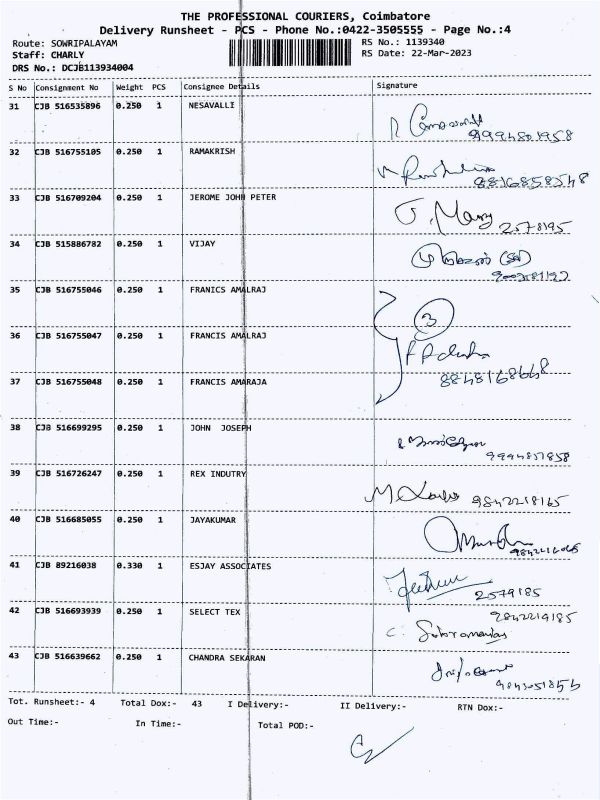 THE PROFESSIONAL COURIERS, Coimbatore
Delivery Runsheet - PCS - Phone No.:0422-3505555 - Page No.:4
Route: SOWRIPALAYAM RS No.: 1139340
Staff: CHARLY RS Date: 22-Mar-2023
DRS No.: DCJB113934004
S No Consignment No Weight PCS Consignee Details Signature
31 CJB 516535896 0.250 1 NESAVALLI
9994801958
32 CJB 516755105 0.250 1 RAMAKRISH
33 CJB 516709204 0.250 1 JEROME JOHN PETER
J. Mary 2578195
34 CJB 515886782 0.250 1 VIJAY
35 CJB 516755046 0.250 1 FRANICS AMALRAJ
3
36 CJB 516755047 0.250 1 FRANCIS AMALRAJ
37 CJB 516755048 0.250 1 FRANCIS AMARAJA
38 CJB 516699295 0.250 1 JOHN JOSEPH
39 CJB 516726247 0.250 1 REX INDUTRY
9842218165
40 CJB 516685055 0.250 1 JAYAKUMAR
41 CJB 89216038 0.330 1 ESJAY ASSOCIATES
2579185
42 CJB 516693939 0.250 1 SELECT TEX
9842214185
C. Subramanian
43 CJB 516639662 0.250 1 CHANDRA SEKARAN
Tot. Runsheet:- 4 Total Dox:- 43 I Delivery:- II Delivery:- RTN Dox:-
Out Time:- In Time:- Total POD:-